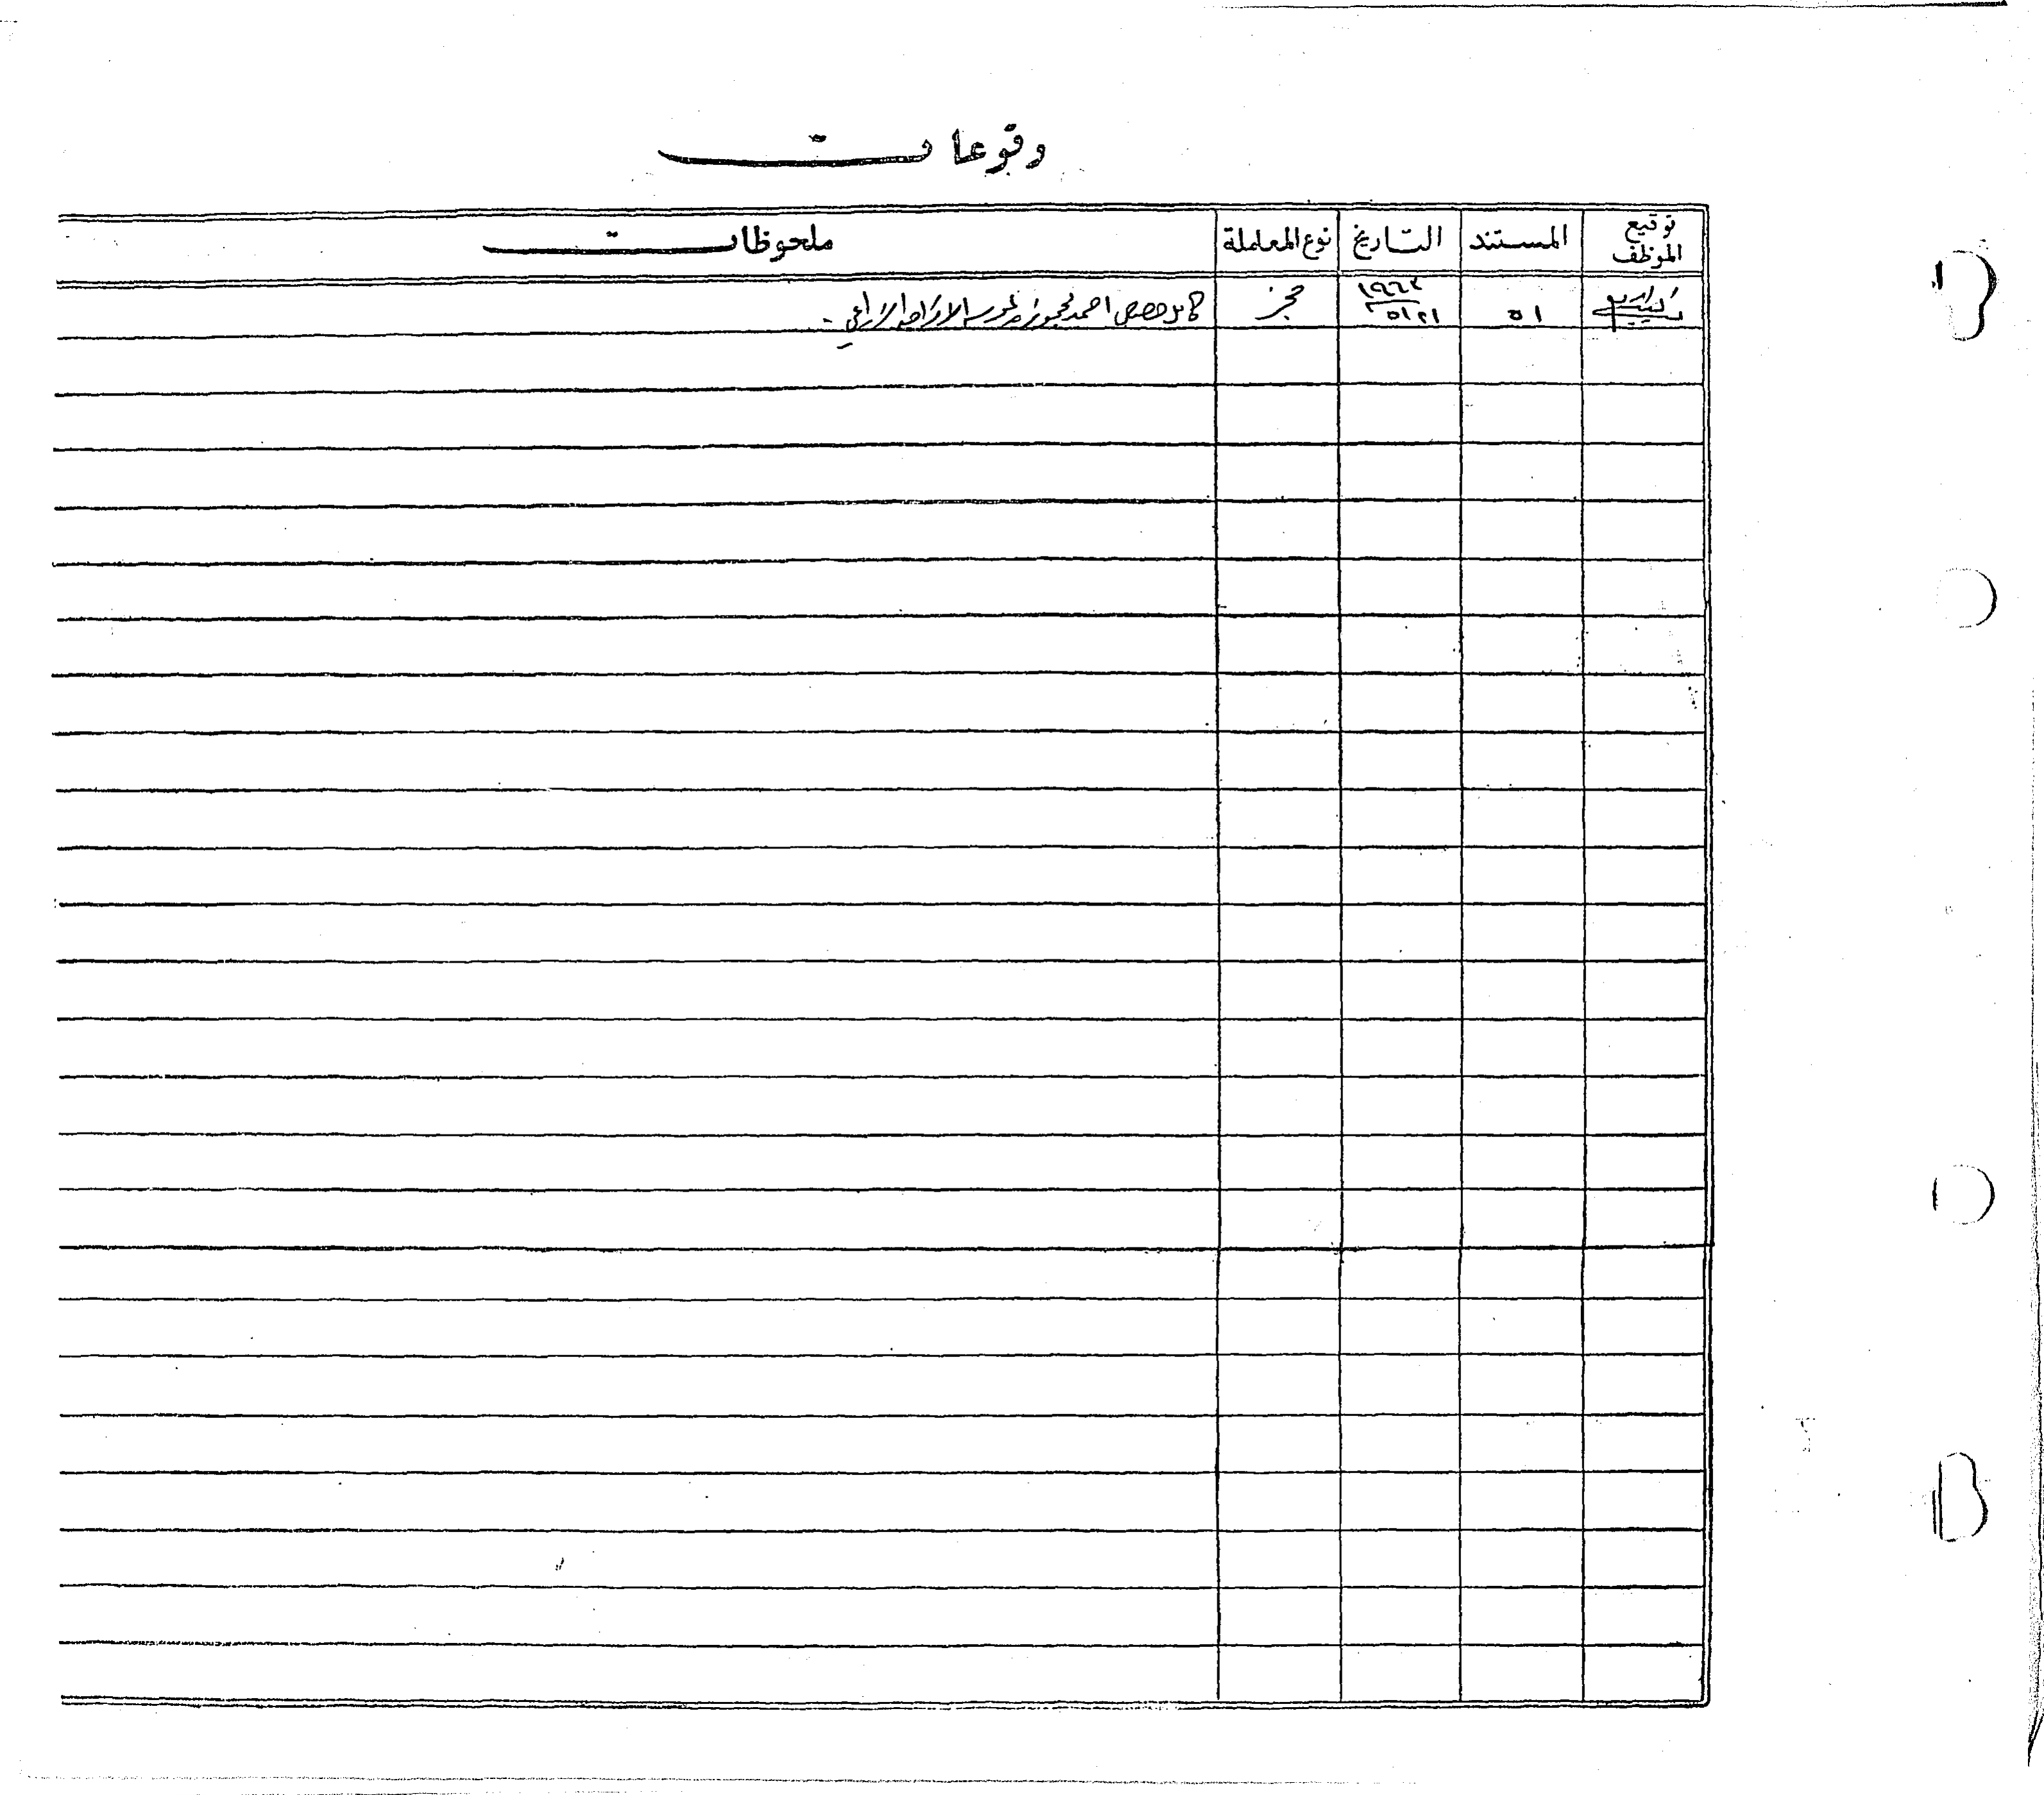 وقوعات
توقيع الموظف المستند التاريخ نوع المعاملة ملحوظات
٥١ ١٩٦٢ ٥/٢١ حجز كامل حصص احمد محجوز لمؤسسة الاقراض الزراعي